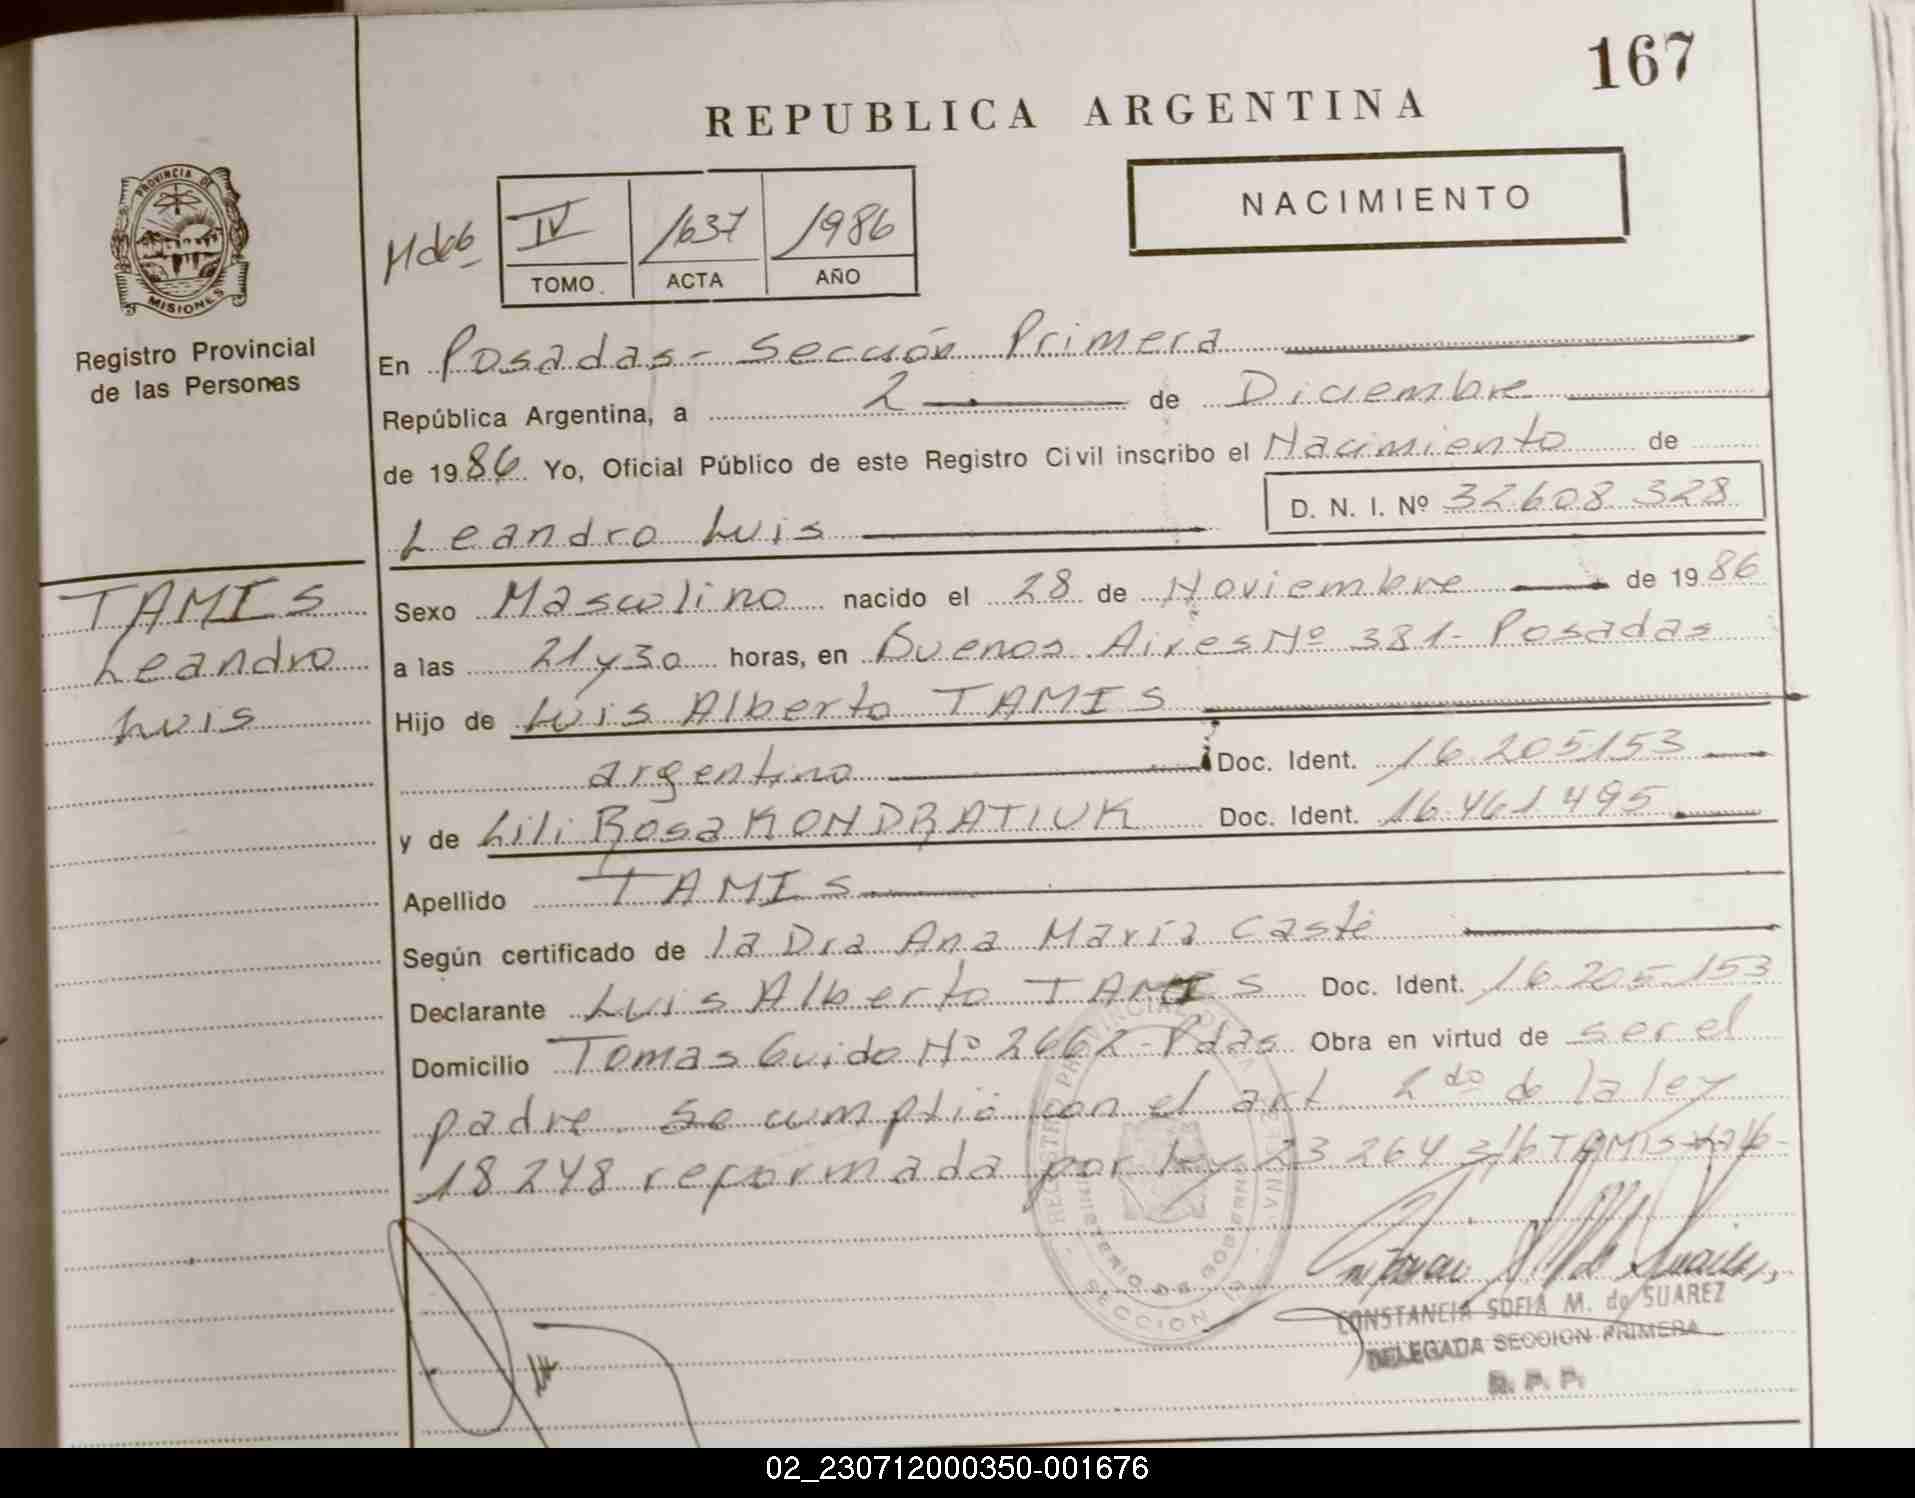 167
REPUBLICA ARGENTINA
NACIMIENTO
PROVINCIA DE
MISIONES
Registro Provincial
de las Personas
IV 1637 1986
TOMO. ACTA AÑO
En Posadas - Sección Primera
República Argentina, a 2 de Diciembre
de 1986. Yo, Oficial Público de este Registro Civil inscribo el Nacimiento de
D. N. I. Nº 32.608.328
Leandro Luis
TAMIS
Leandro
Luis
Sexo Masculino nacido el 28 de Noviembre de 1986
a las 21 y 30 horas, en Buenos Aires Nº 381 - Posadas
Hijo de Luis Alberto TAMIS
argentino Doc. Ident. 16.205.153
y de Lili Rosa KONDRATIUK Doc. Ident. 16.461.495
Apellido TAMIS
Según certificado de la Dra Ana María Casté
Declarante Luis Alberto TAMIS Doc. Ident. 16.205.153
Domicilio Tomas Guido Nº 2662 - Pdas Obra en virtud de ser el
padre. Se cumplió con el art 2do de la ley
18.248 reformada por ley 23264 s/b TAMIS
REGISTRO PROVINCIAL DE
MINISTERIO DE GOBIERNO
SECCION
CONSTANCIA SOFIA M. de SUAREZ
DELEGADA SECCION PRIMERA
R. P. P.
02_230712000350-001676